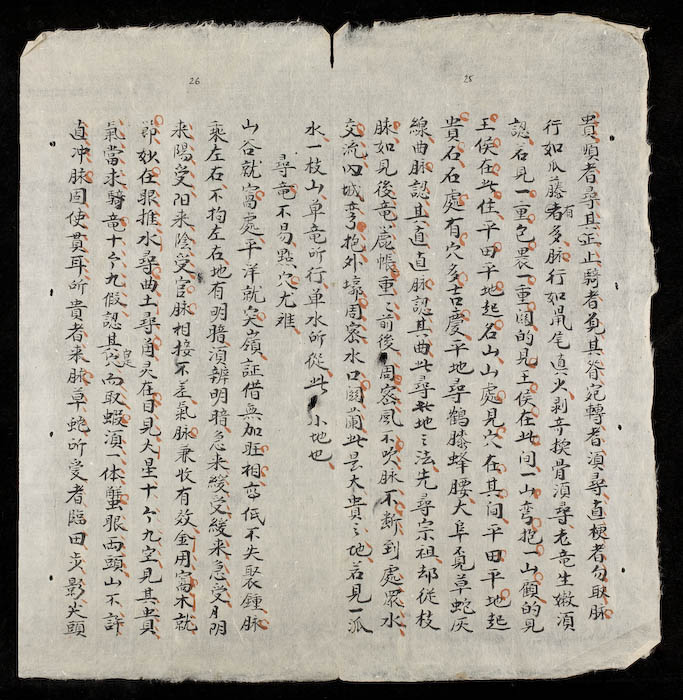 25
貴順者尋其正止騎者覓其脊宛轉者須尋直梗者勿耿脉
行如瓜藤者有多脉行如鼠尾真火剥竒換骨須尋老竜生嫩須
認若見一重包畏一重関的見王侯在此间一山弯抱一山顧的見
王侯在此住平田平地起名山山處見穴在其间平田平地起
貴石石處有穴多吉慶平地尋鶴膝蜂腰大阜覓草蛇灰
線曲脉認其直直脉認其曲此尋地之法先尋宗祖却從枝
脉如見後竜嵩帳重〻前後周宻風不吹脉不断到處眾水
交流內城弯抱外壕周宻水口関蘭此是大貴之地若見一派
水一枝山单竜所行单水所從此小地也
尋竜不易點穴尤难
26
山谷就窩處平洋就突嶺証借無加班相高低不失裂鍾脉
乘左右不拘左右地有明暗須辨明暗急来緩受緩来急受月阴
来陽受阳来陰受官脉相接不差氣脉兼收有效金用窩木就
節妙在眼推水尋曲土尋角灵在目見大星十个九空見其貴
氣當求騎竜十个九假認其穴而取蝦須一体蟹眼两頭山不許
直冲脉固使貫耳所貴者来脉草蛇所受者臨田步影尖頭